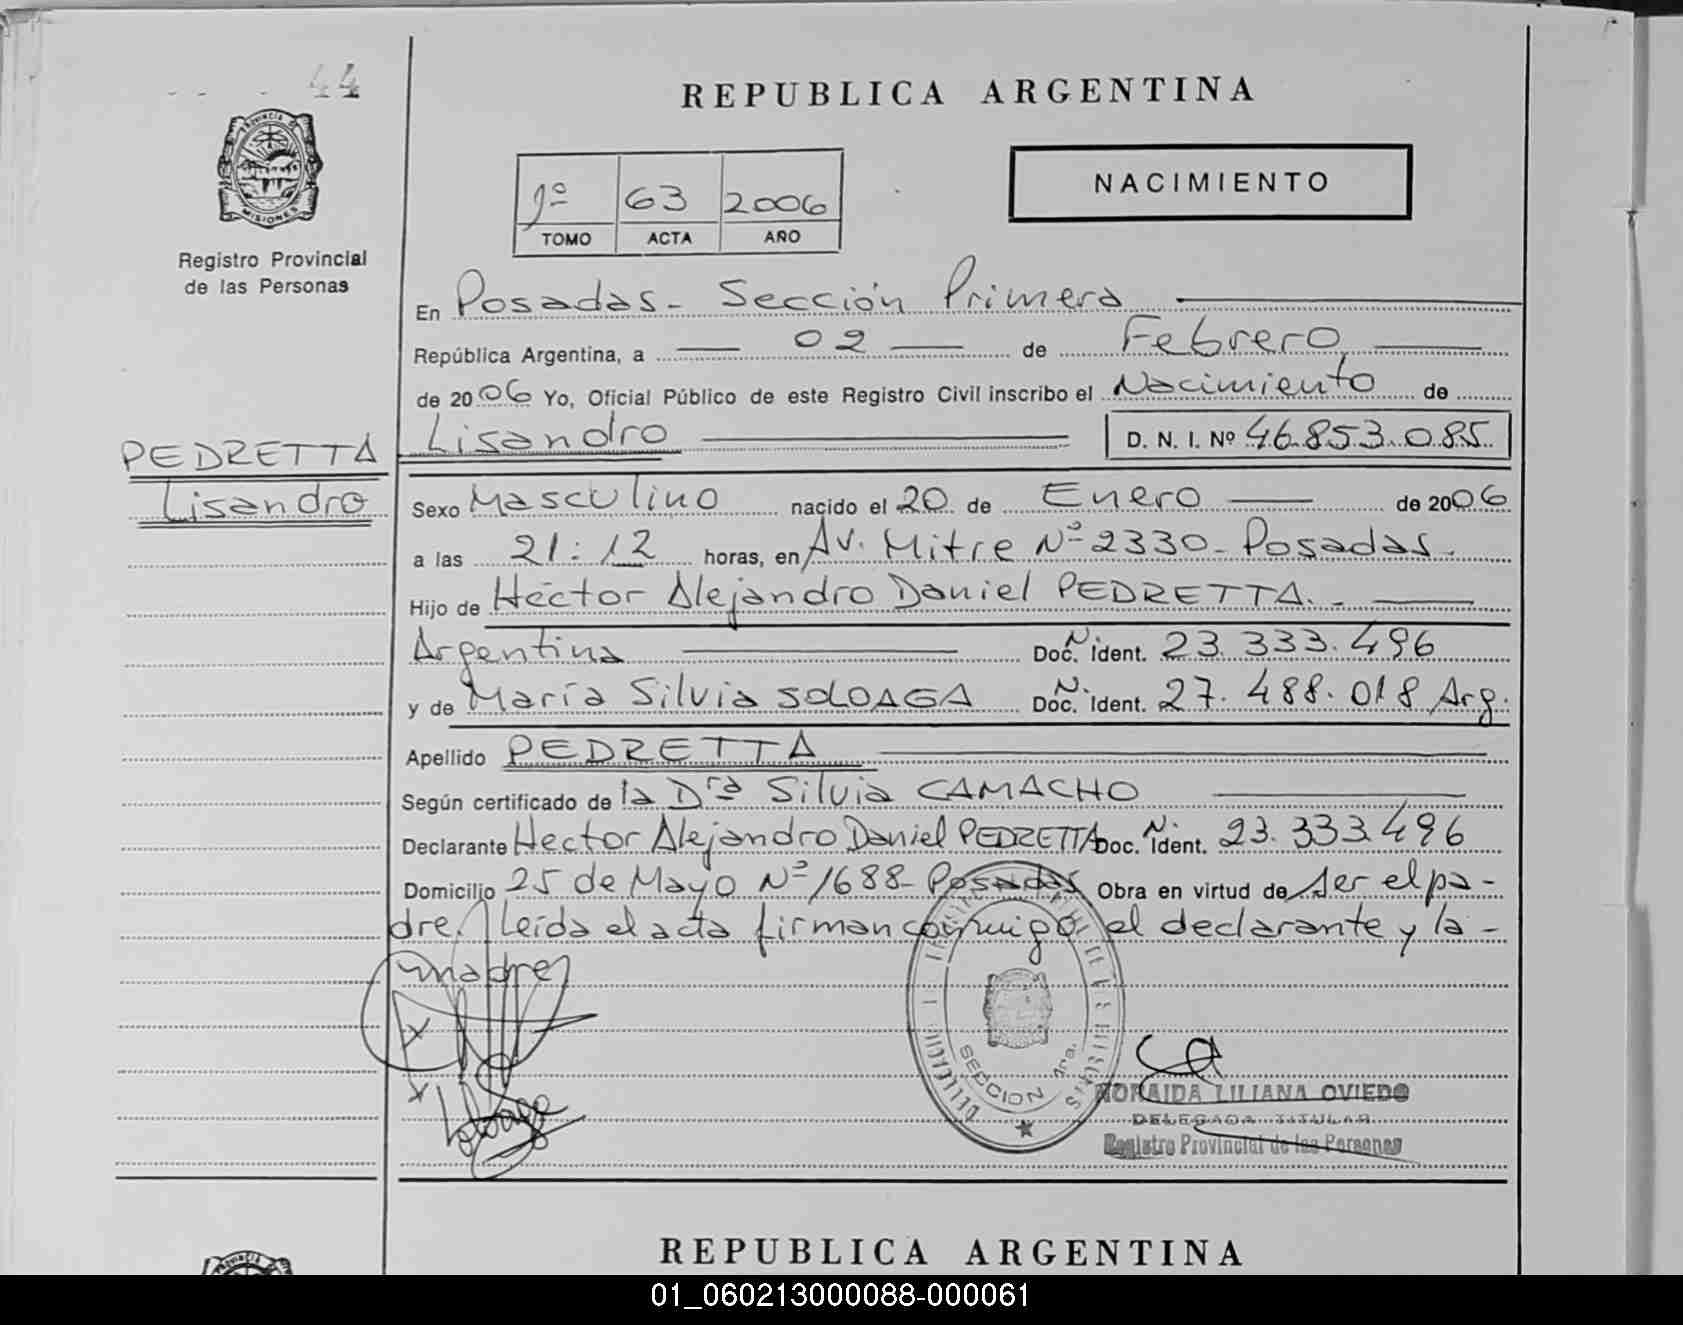 44
REPUBLICA ARGENTINA
PROVINCIA DE
MISIONES
Registro Provincial
de las Personas
1º 63 2006
TOMO ACTA AÑO
NACIMIENTO
En Posadas - Sección Primera
República Argentina, a 02 de Febrero
de 2006 Yo, Oficial Público de este Registro Civil inscribo el Nacimiento de
Lisandro D. N. I. Nº 46.853.085
PEDRETTA
Lisandro
Sexo Masculino nacido el 20 de Enero de 2006
a las 21:12 horas, en Av. Mitre Nº 2330 - Posadas
Hijo de Héctor Alejandro Daniel PEDRETTA. -
Argentina Doc. N. Ident. 23.333.496
y de María Silvia SOLOAGA Doc. N. Ident. 27.488.018 Arg.
Apellido PEDRETTA
Según certificado de la Drª Silvia CAMACHO
Declarante Hector Alejandro Daniel PEDRETTA Doc. N. Ident. 23.333.496
Domicilio 25 de Mayo Nº 1688 - Posadas Obra en virtud de ser el pa-
dre. Leída el acta firman conmigo el declarante y la -
madre
SECCION 1ra.
NORAIDA LILIANA OVIEDO
DELEGADA TITULAR
Registro Provincial de las Personas
REPUBLICA ARGENTINA
01_060213000088-000061